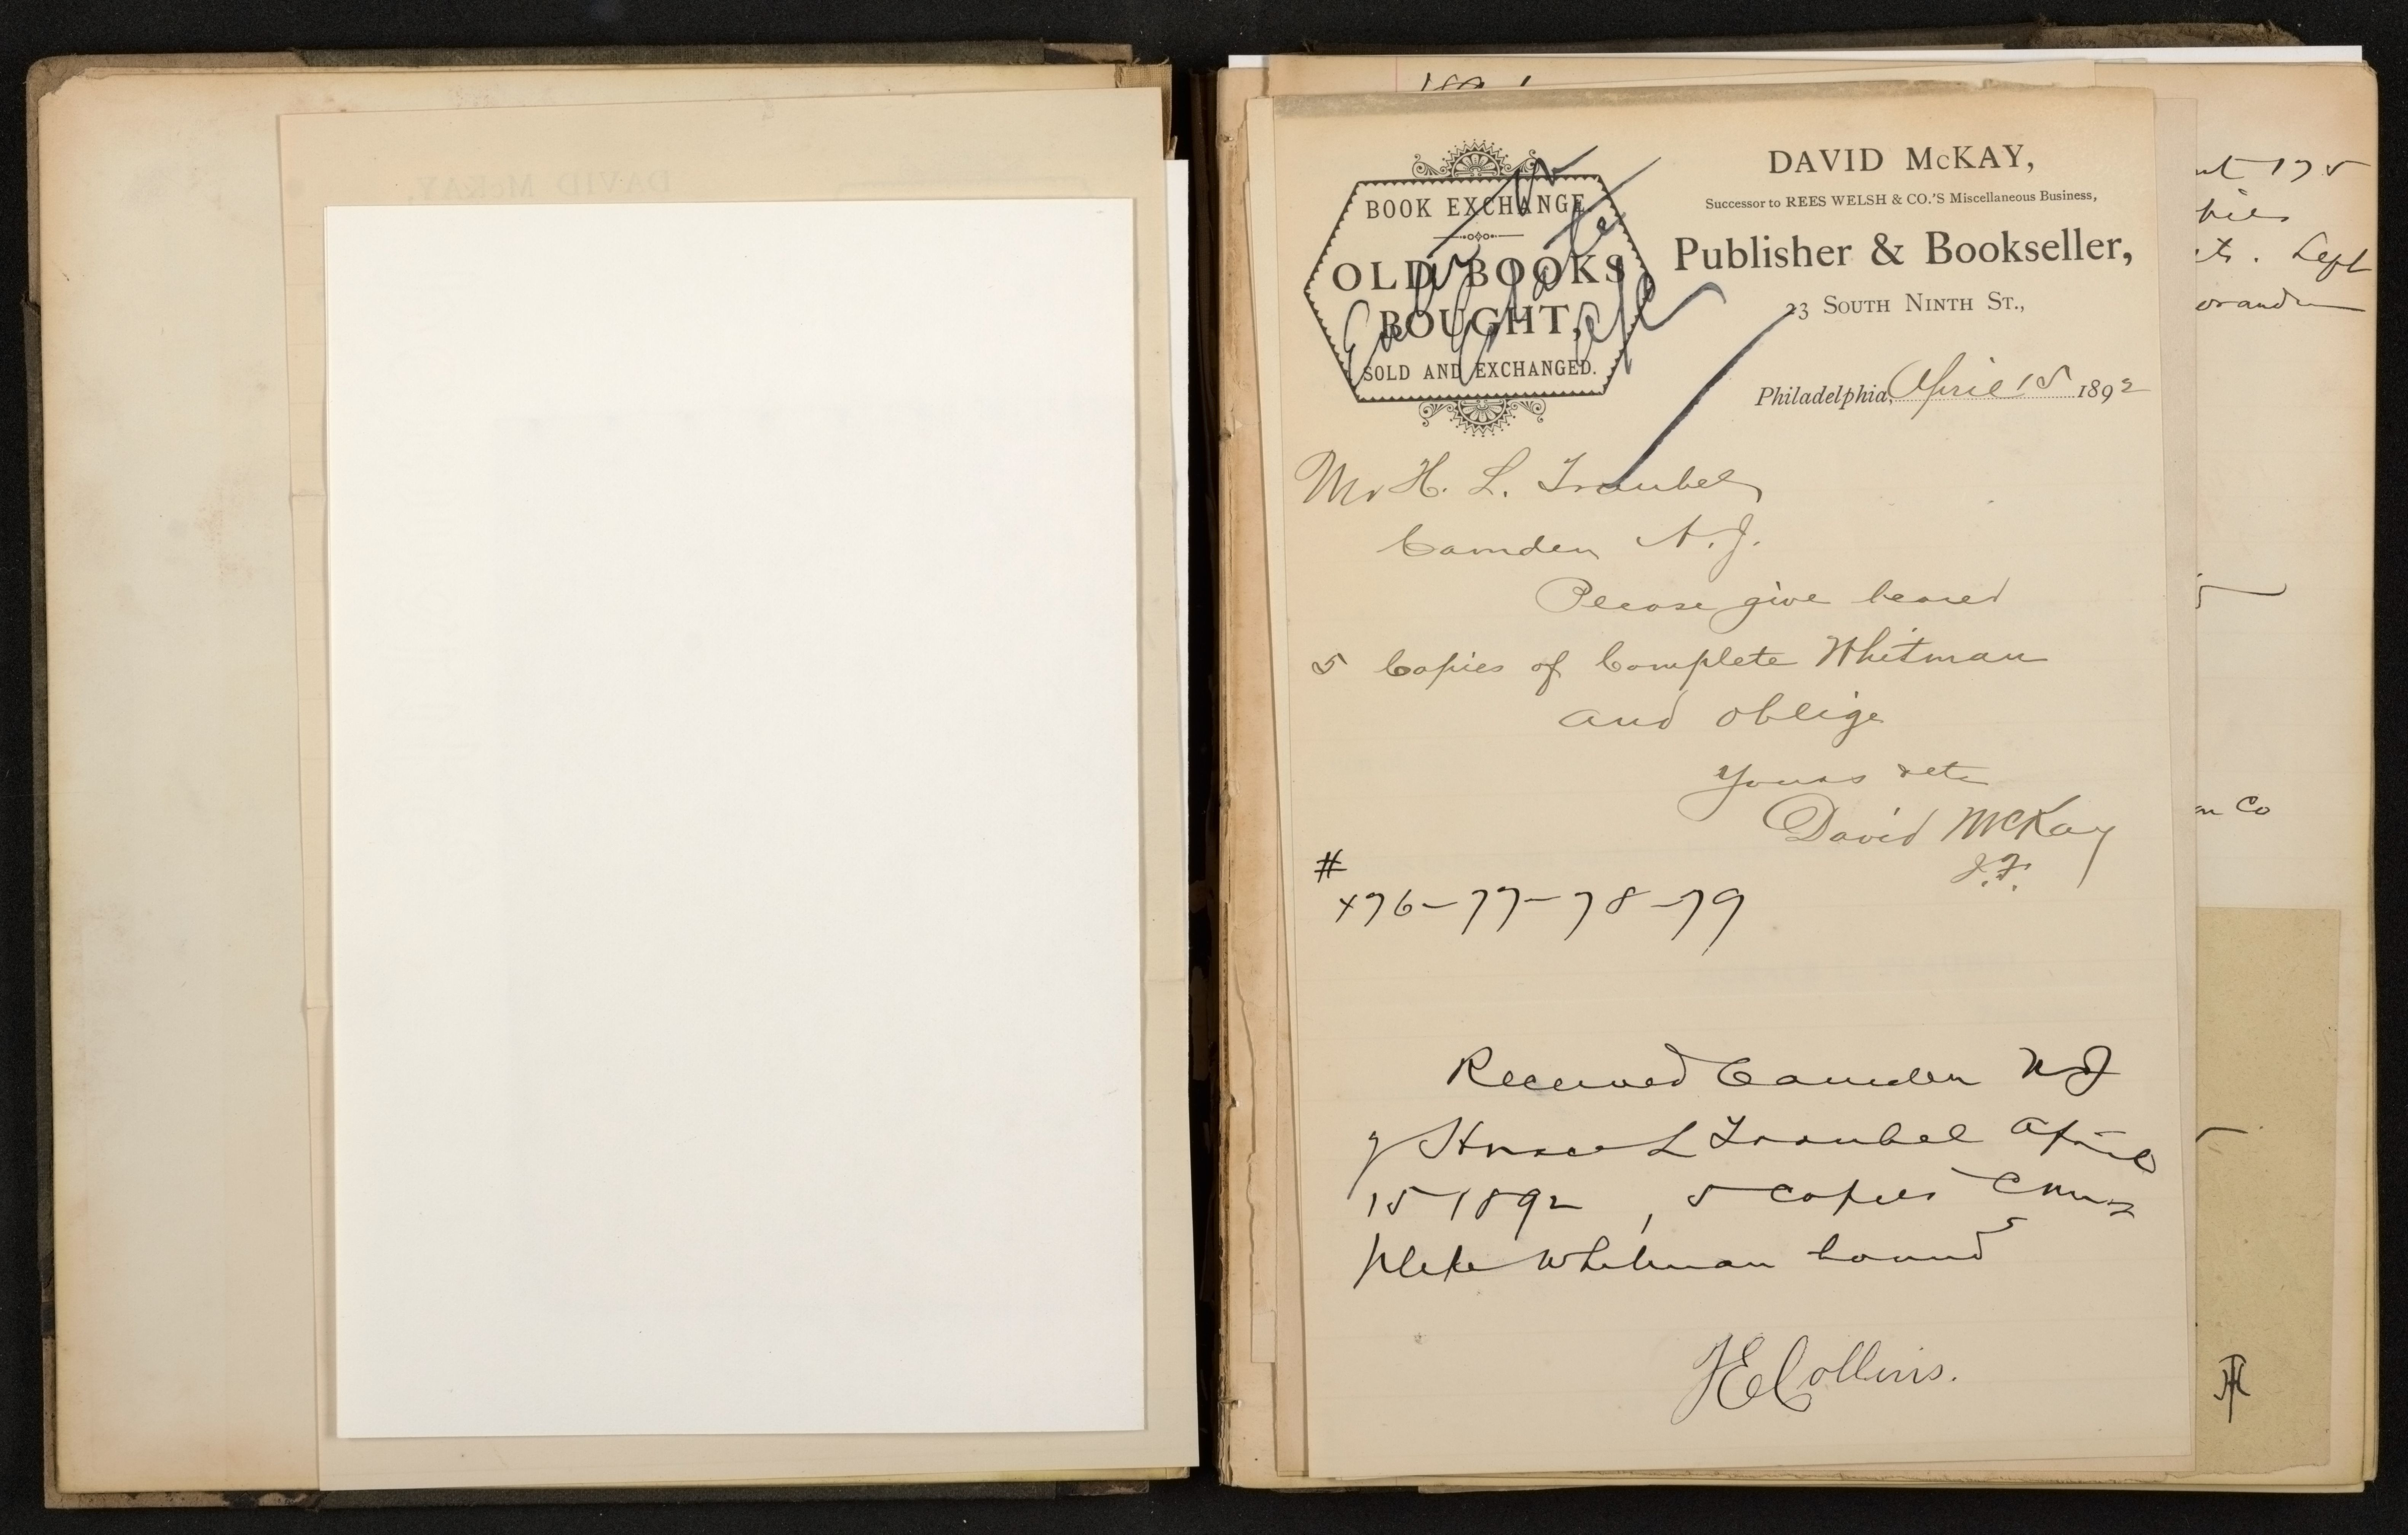 DAVID McKAY,
BOOK EXCHANGE
OLD BOOKS
BOUGHT,
SOLD AND EXCHANGED.
DAVID McKAY,
Successor to REES WELSH & CO.'S Miscellaneous Business,
Publisher & Bookseller,
23 SOUTH NINTH ST.,
Philadelphia, April 15 1892
Mr H. L. Traubel
Camden N. J.
Please give bearer
5 Copies of Complete Whitman
and oblige
Yours etc
David McKay
J.F.
#
476-77-78-79
Received Camden NJ
of Horace L Traubel April
15 1892, 5 copies Com-
plete Whitman bound
JE Collins.
175
Sept
Co